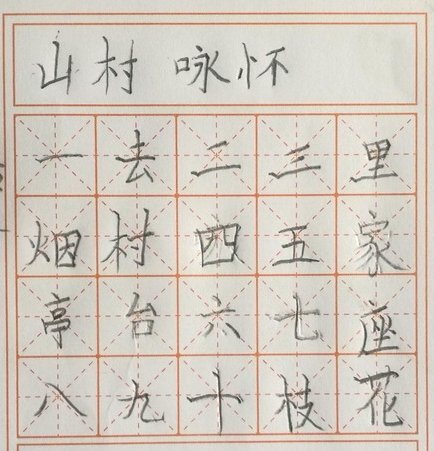 山村 咏怀
一去二三里
烟村四五家
亭台六七座
八九十枝花